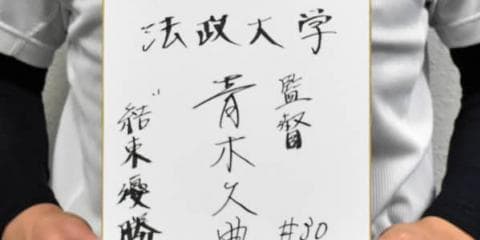 法政大学
監督
青木久典
#30
"結束優勝